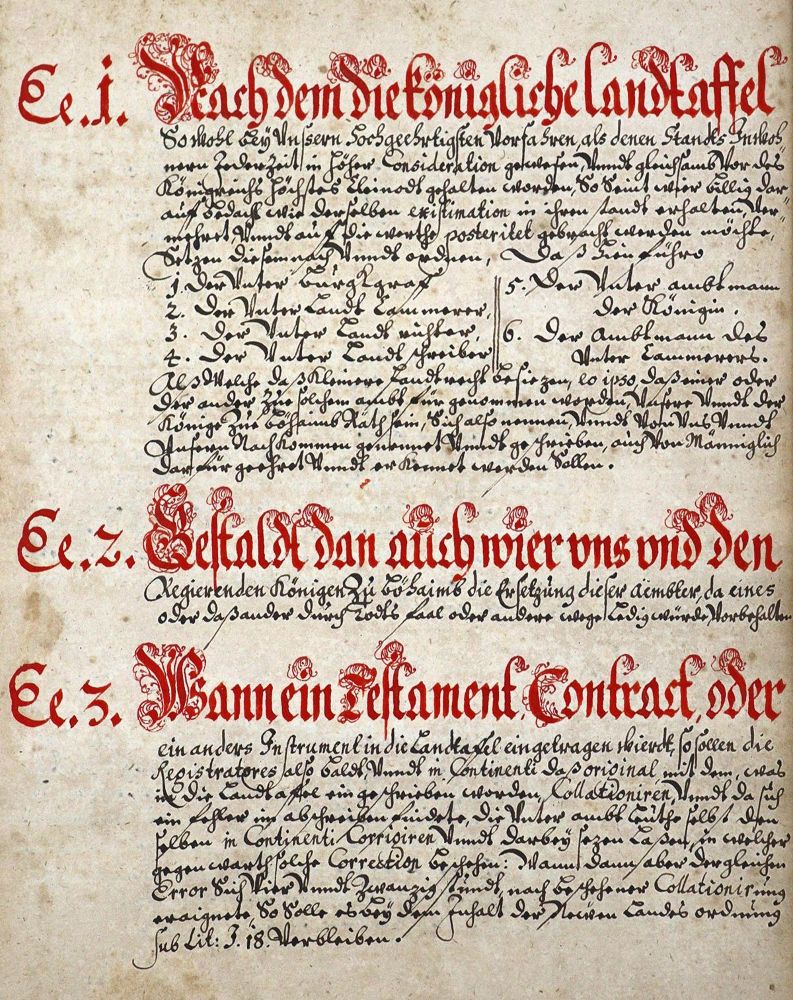 Ee.1. Nach dem die königliche landtaffel
So wohl bey Unssern Hochgeehrtigsten Vorfahren, als denen Standes Inwoh-
nern Jederzeit in hoher Consideration gewesen, Unndt gleichsamb Vor des
Königreichs höchstes Cleinodt gehalten worden, So Seint wier billig dar-
auf bedacht wie derselben existimation in ihren standt erhalten, Ver-
mehret, Unndt auf die werthe posteritet gebracht werden möchte,
Setzen diesemnach Unndt ordnen, Daß hinführo
1. Der Unter Burgkgraf
2. Der Unter Landt Cammerer,
3. Der Unter Landt richter,
4. Der Unter Landt schreiber
5. Der Unter ambtmann
der Königin.
6. Der Ambtmann des
Unter Cammerers.
Alß Welche daß Kleinere Landtrecht besiezen, eo ipso, daß einer oder
der ander zue solchem ambt für genommen worden, Unsere Unndt der
Könige zue Böhaimb Räth sein, Sich also nennen, Unndt Von Uns Unndt
Unsern Nachkommen genennet Unndt geschrieben, auch Von Männiglich
darfür geehret Unndt erkennet werden Sollen.
Ee.2. Gestaldt dan auch wier vns vnd den
Regierenden Königen Zu Böhaimb die Ersetzung dieser Aembter, da eines
oder daß ander durch Todts faal oder andere wege Ledig würde, Vorbehalten
Ee.3. Wann ein Testament, Contract, oder
ein anders Instrument in die Landtafel eingetragen wierdt, so sollen die
Registratores also baldt, Unndt in Continenti daß original mit dem, was
in die Landtaffel eingeschrieben worden, Collationiren, Unndt da sich
ein fehler im abschreiben findete, die Unter ambt Leuthe selbst den
selben in Continenti Corrigiren Unndt darbey sezen Laßen, in welcher
gegenwarth solche Correction beschehen: Wann dann aber dergleichen
Error Sich Vier Unndt Zwanzig stundt, nach beschehener Collationirung
eraignete, So Solle es bey dem Inhalt der Newen Landes ordnung
sub Lit: J. 18. Verbleiben.